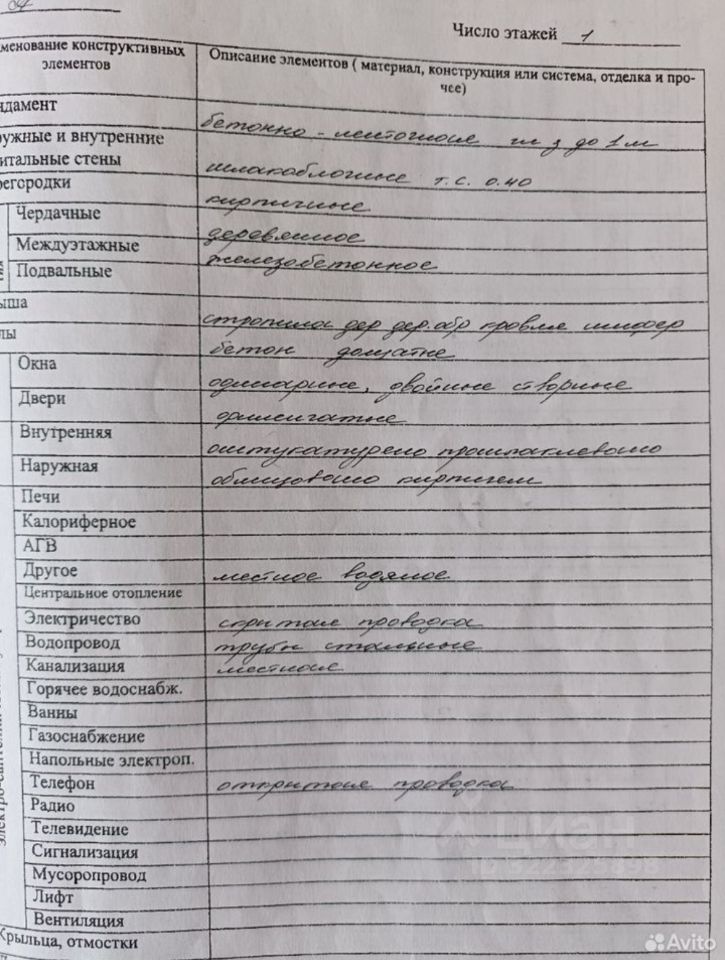 А
Число этажей 1
менование конструктивных элементов
Описание элементов ( материал, конструкция или система, отделка и прочее)
ндамент
бетонно - ленточное гл з до 1 м
ружные и внутренние
итальные стены шлакоблочные т.с. 0.40
егородки кирпичные
Чердачные деревянное
Междуэтажные железобетонное
Подвальные
ыша стропила дер дер.обр кровля шифер
лы бетон дощатые
Окна одинарные, двойные створные
Двери филенчатые
Внутренняя оштукатурено прошпаклевано
Наружная облицовано кирпичем
Печи
Калориферное
АГВ
Другое местное водяное
Центральное отопление
Электричество скрытая проводка
Водопровод трубы стальные
Канализация местная
Горячее водоснабж.
Ванны
Газоснабжение
Напольные электроп.
Телефон открытая проводка
Радио
Телевидение
Сигнализация
Мусоропровод
Лифт
Вентиляция
Крыльца, отмостки
циан
Avito